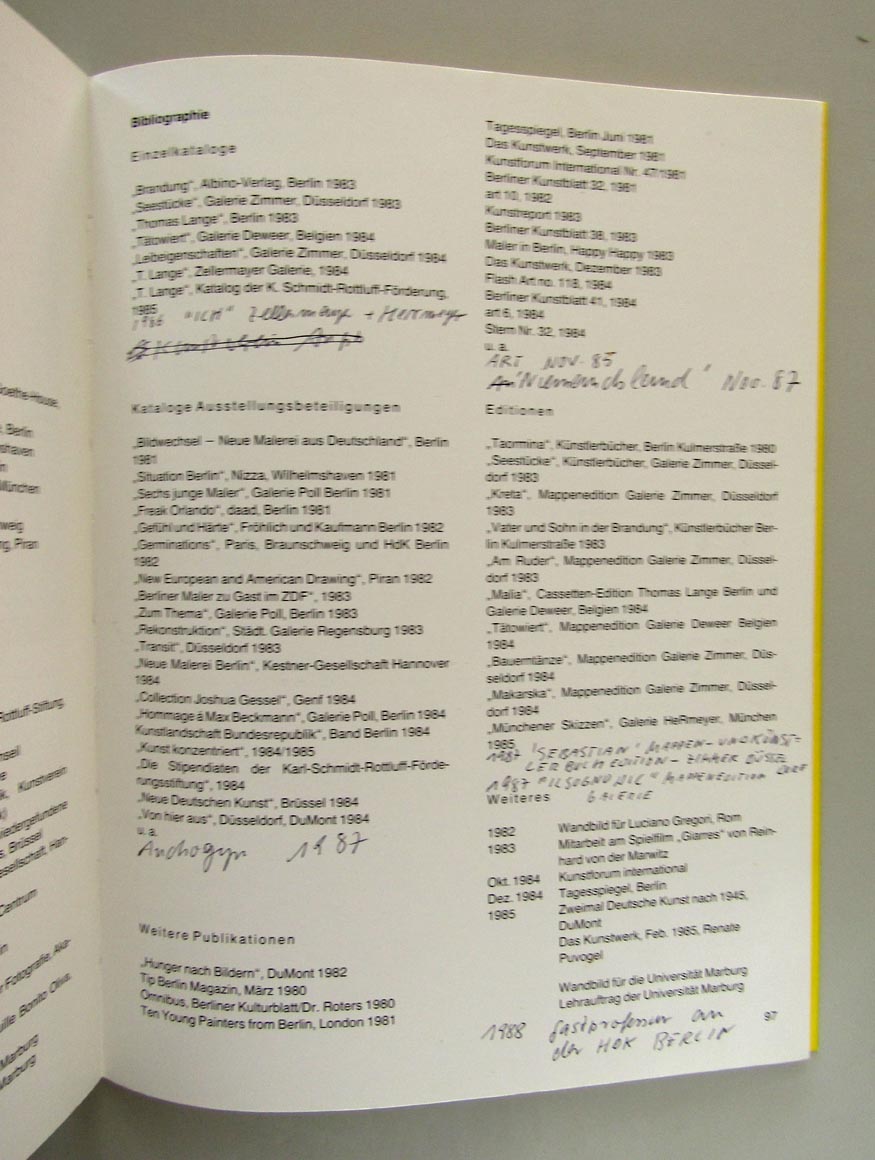 Bibliographie
Einzelkataloge
„Brandung“, Albino-Verlag, Berlin 1983
„Seestücke“, Galerie Zimmer, Düsseldorf 1983
„Thomas Lange“, Berlin 1983
„Tätowiert“, Galerie Deweer, Belgien 1984
„Leibeigenschaften“, Galerie Zimmer, Düsseldorf 1984
„T. Lange“, Zellermayer Galerie, 1984
„T. Lange“, Katalog der K. Schmidt-Rottluff-Förderung,
1985
1986 "ICH" Zellermayer + Hermeyer
Kataloge Ausstellungsbeteiligungen
„Bildwechsel – Neue Malerei aus Deutschland“, Berlin
1981
„Situation Berlin“, Nizza, Wilhelmshaven 1981
„Sechs junge Maler“, Galerie Poll Berlin 1981
„Freak Orlando“, daad, Berlin 1981
„Gefühl und Härte“, Fröhlich und Kaufmann Berlin 1982
„Germinations“, Paris, Braunschweig und HdK Berlin
1982
„New European and American Drawing“, Piran 1982
„Berliner Maler zu Gast im ZDF“, 1983
„Zum Thema“, Galerie Poll, Berlin 1983
„Rekonstruktion“, Städt. Galerie Regensburg 1983
„Transit“, Düsseldorf 1983
„Neue Malerei Berlin“, Kestner-Gesellschaft Hannover
1984
„Collection Joshua Gessel“, Genf 1984
„Hommage à Max Beckmann“, Galerie Poll, Berlin 1984
Kunstlandschaft Bundesrepublik“, Band Berlin 1984
„Kunst konzentriert“, 1984/1985
„Die Stipendiaten der Karl-Schmidt-Rottluff-Förde-
rungsstiftung“, 1984
„Neue Deutschen Kunst“, Brüssel 1984
„Von hier aus“, Düsseldorf, DuMont 1984
u. a.
Androgyn 1987
Weitere Publikationen
„Hunger nach Bildern“, DuMont 1982
Tip Berlin Magazin, März 1980
Omnibus, Berliner Kulturblatt/Dr. Roters 1980
Ten Young Painters from Berlin, London 1981
Tagesspiegel, Berlin Juni 1981
Das Kunstwerk, September 1981
Kunstforum International Nr. 47/1981
Berliner Kunstblatt 32, 1981
art 10, 1982
Kunstreport 1983
Berliner Kunstblatt 38, 1983
Maler in Berlin, Happy Happy 1983
Das Kunstwerk, Dezember 1983
Flash Art no. 118, 1984
Berliner Kunstblatt 41, 1984
art 6, 1984
Stern Nr. 32, 1984
u. a.
ART NOV. 85
"Niemandsland" Nov. 87
Editionen
„Taormina“, Künstlerbücher, Berlin Kulmerstraße 1980
„Seestücke“, Künstlerbücher, Galerie Zimmer, Düssel-
dorf 1983
„Kreta“, Mappenedition Galerie Zimmer, Düsseldorf
1983
„Vater und Sohn in der Brandung“, Künstlerbücher Ber-
lin Kulmerstraße 1983
„Am Ruder“, Mappenedition Galerie Zimmer, Düssel-
dorf 1983
„Malia“, Cassetten-Edition Thomas Lange Berlin und
Galerie Deweer, Belgien 1984
„Tätowiert“, Mappenedition Galerie Deweer Belgien
1984
„Bauerntänze“, Mappenedition Galerie Zimmer, Düs-
seldorf 1984
„Makarska“, Mappenedition Galerie Zimmer, Düssel-
dorf 1984
„Münchener Skizzen“, Galerie HeRmeyer, München
1985
1987 "SEBASTIAN" MAPPEN- UND KÜNST-
LERBUCH EDITION - ZIMMER DÜSSEL
1987 "IL SOGNO" MAPPENEDITION DORF
GALERIE
Weiteres
1982 Wandbild für Luciano Gregori, Rom
1983 Mitarbeit am Spielfilm „Giarres“ von Rein-
hard von der Marwitz
Okt. 1984 Kunstforum international
Dez. 1984 Tagesspiegel, Berlin
1985 Zweimal Deutsche Kunst nach 1945,
DuMont
Das Kunstwerk, Feb. 1985, Renate
Puvogel
Wandbild für die Universität Marburg
Lehrauftrag der Universität Marburg
97
1988 Gastprofessur an
der HDK BERLIN